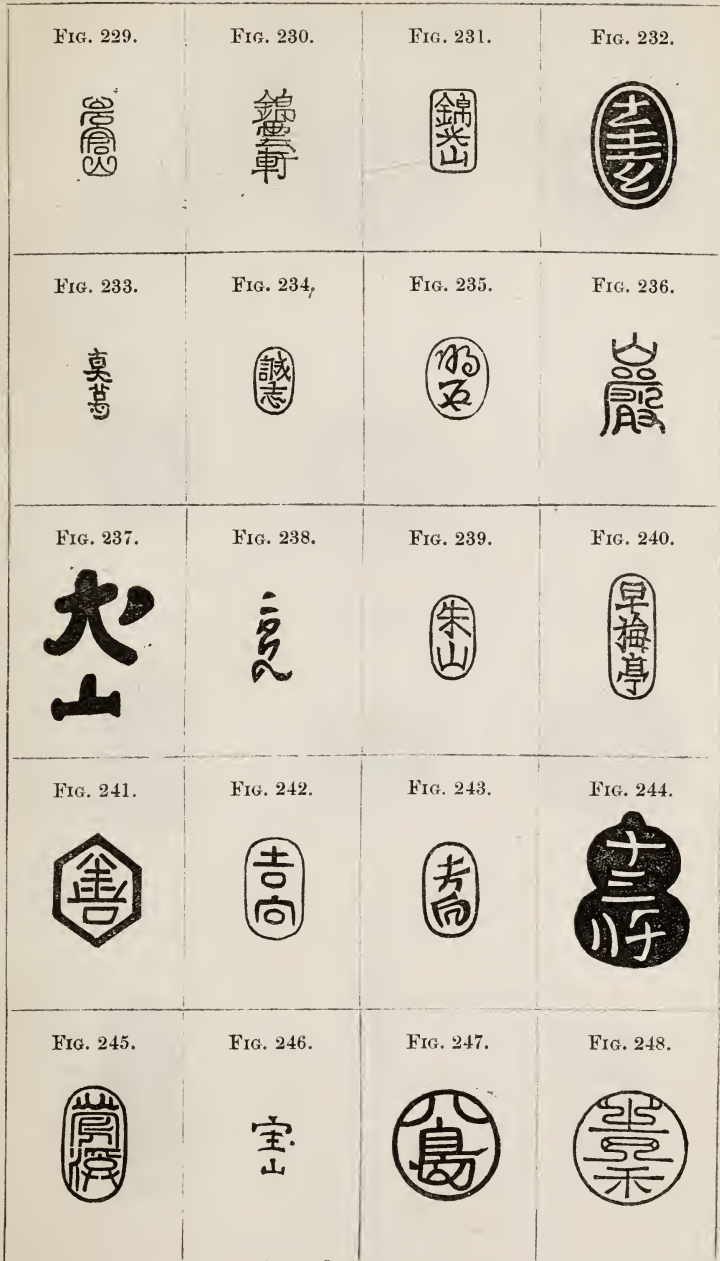 FIG. 229. FIG. 230. FIG. 231. FIG. 232.
錦雲軒
錦光山
FIG. 233. FIG. 234. FIG. 235. FIG. 236.
誠志
FIG. 237. FIG. 238. FIG. 239. FIG. 240.
犬山
朱山
早梅亭
FIG. 241. FIG. 242. FIG. 243. FIG. 244.
善
吉向
吉向
十三軒
FIG. 245. FIG. 246. FIG. 247. FIG. 248.
宝山
八島